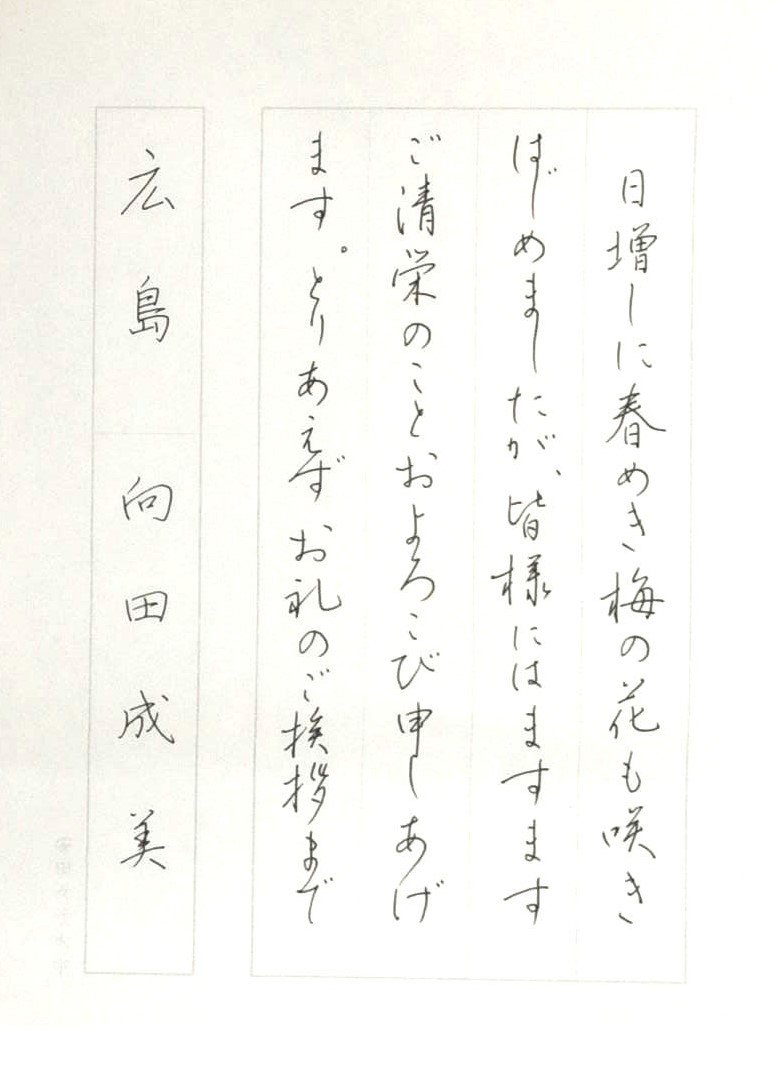 日増しに春めき梅の花も咲き
はじめましたが、皆様にはますます
ご清栄のことおよろこび申しあげ
ます。とりあえずお礼のご挨拶まで
広島 向田成美